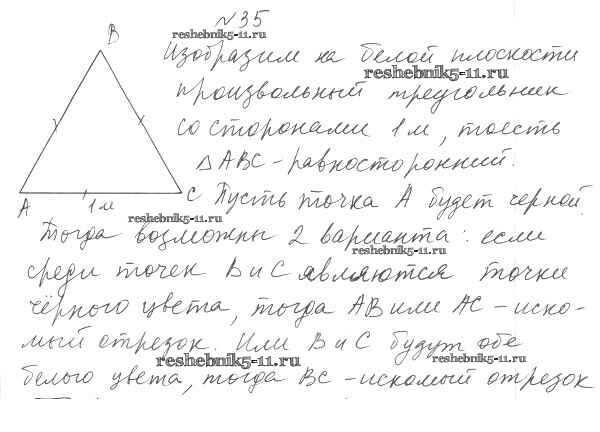 №35
reshebnik5-11.ru
B
Изобразим на белой плоскости
reshebnik5-11.ru
произвольный треугольник
со сторонами 1 м, тоесть
△ABC - равносторонний.
A 1 м C Пусть точка A будет черной.
reshebnik5-11.ru
Тогда возможны 2 варианта: если
reshebnik5-11.ru
среди точек B и C являются точки
чёрного цвета, тогда AB или AC - иско-
мый отрезок. Или B и C будут обе
reshebnik5-11.ru reshebnik5-11.ru
белого цвета, тогда BC - искомый отрезок